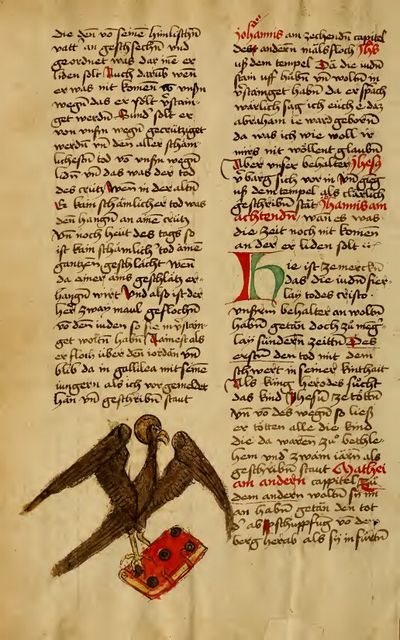 die den vō seinē himlischn
vatt an geschechn̄ vnd
geordnet was dar jne er
liden solt Auch darūb wen
er was nit komen vnsn
wegn das er solt v̄stain
get werdn̄ Sund solt er
von vnsn wegn gecrützigot
werdn̄ vn̄ den aller schäm
lichestn̄ tod vō vnsn wegn̄
lidn̄ vn̄ das was der tod
des crütz Wen in der altn̄
Ee kain schämlicher tod was
den hangn̄ an aine crütz
Vn̄ noch heut des tags so
ist kain schämlich tod aine
gantzen geschlächt wen̄
da einer ains geschlätz er
hangn̄ wirt Vnd also ist der
her zway maul geflochn̄
vō den iuden so sie in v̄stain
get woltn̄ habn̄ Ainest als
er floch über den iordan vn̄
blib da in gallilea mit seine
iungern als ich vor gemeldet
han vn̄ geschribn̄ staut
Johannis am zechendn̄ capitel
Des andern mäls floch Jhs
uß dem tempel Da die iudn̄
stain uff hübn̄ vn̄ woltn̄ in
v̄stainget habn̄ da er sprach
warlich sag ich eich e daz
abraham ie ward geborn̄
da was ich wie woll ir
mirs nit wöllent glaubn̄
Aber vnser behalter Jhesu
v̄barg sich vor in vn̄ gieg
uß dem tempel als clärlich
geschribn̄ stät Johannis am
achtendn̄ wan es was
die zeit noch nit komen
an der er liden solt
Hie ist zemerckn̄
das die iudn̄ fier
lay todes cristo
vnsrem behalter an woltn̄
habn̄ getän doch zu mēg
lay sundern zeitn̄ Des
erstn̄ den tod mit dem
schwert in seiner kinthait
Als king herodes sücht
das kind Jhesu ze töttn̄
vn̄ vō des wegn̄ so ließ
er tötten alle die kind
die da waren zu bethle
hem vnd zwaim iärn als
geschribn̄ staut Mathei
am andern cappittel Zu
dem andern woltn̄ sy im
an habn̄ getän den tot
d' abschupffug vō der
berg herab als sy in fürtn̄